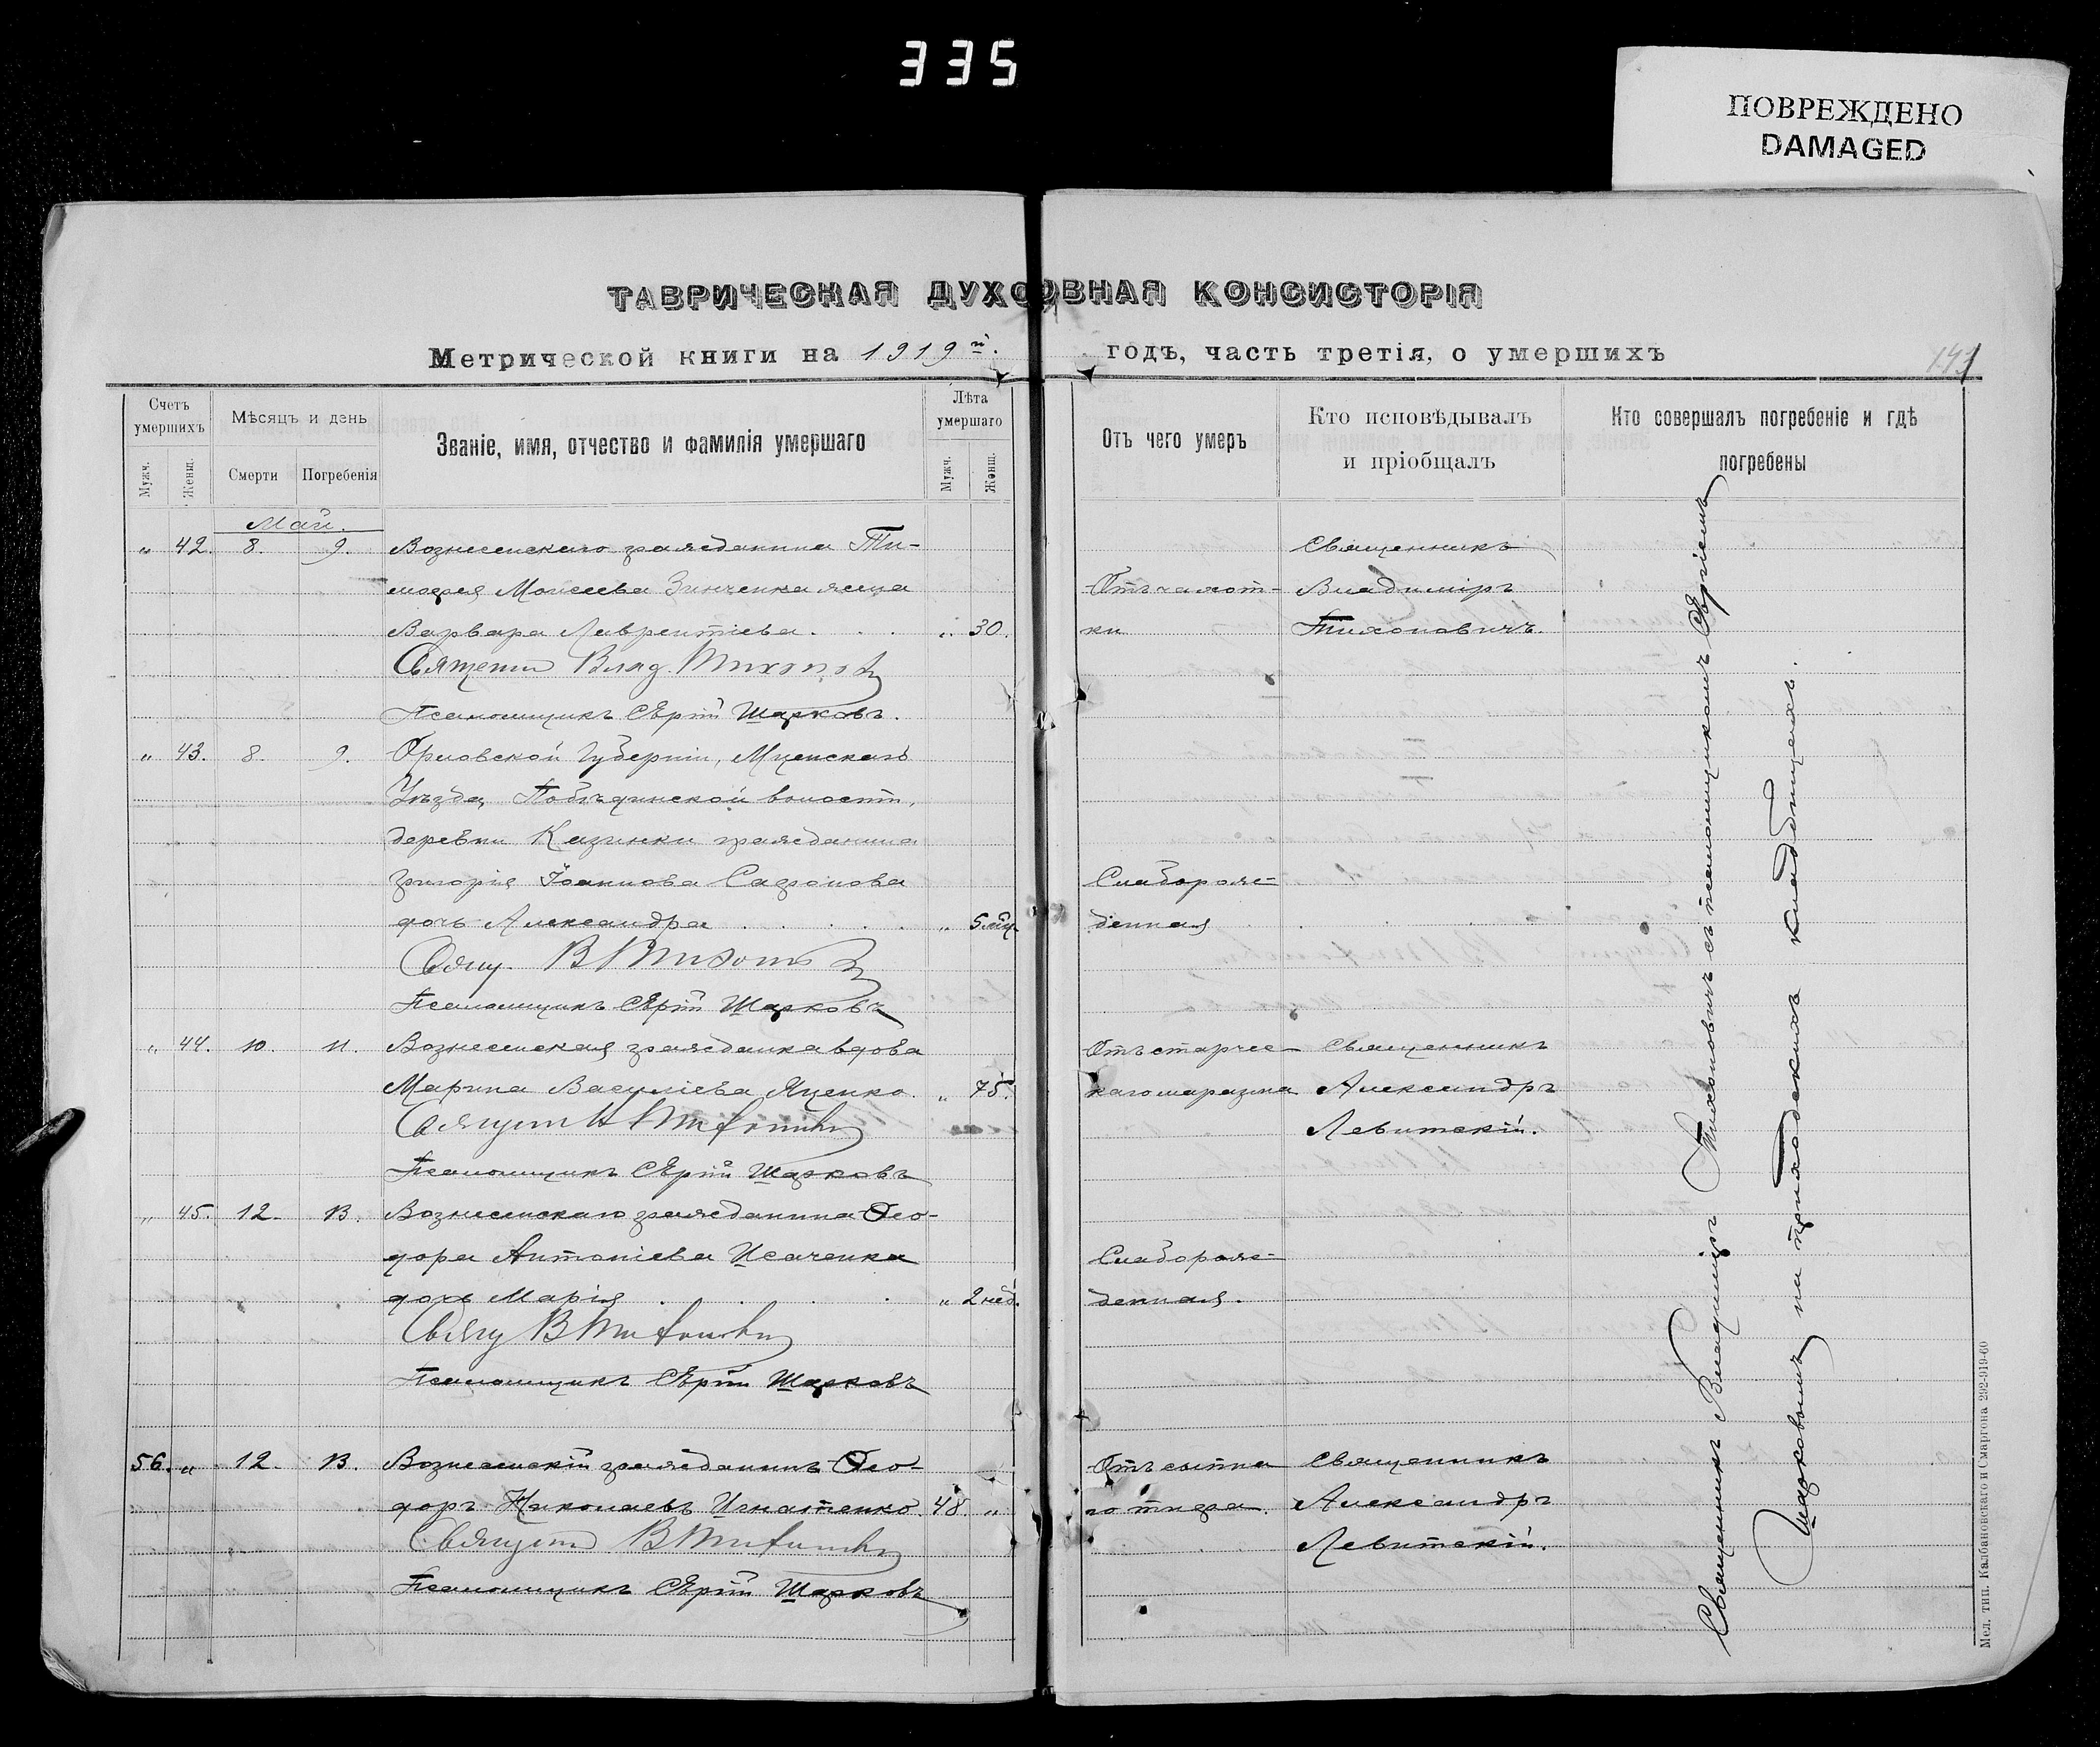 335
ПОВРЕЖДЕНО
DAMAGED
ТАВРИЧЕСКАЯ ДУХОВНАЯ КОНСИСТОРІЯ
Метрической книги на 1919 й. годъ, часть третія, о умершихъ
141
Счетъ умершихъ
Мужч.
Женщ.
Мѣсяцъ и день
Смерти
Погребенія
Званіе, имя, отчество и фамилія умершаго
Лѣта умершаго
Мужч.
Женщ.
Отъ чего умеръ
Кто исповѣдывалъ и пріобщалъ
Кто совершалъ погребеніе и гдѣ погребены
Май.
" 42. 8. 9. Вознесенскаго гражданина Ти- Священникъ
мофея Моисеева Зинченка жена Отъ чахот- Владиміръ
Варвара Лаврентіева . . . " 30. ки Тихоновичъ.
Священ Влад. Тихонов
Псаломщикъ Сѣргій Шарковъ.
" 43. 8. 9. Орловской Губерніи, Мценскаго
Уѣзда, волости,
деревни Казинки гражданина
Григорія Іоаннова Сафонова Слаборож-
дочь Александра . . . . . " 5 мѣц. денная
Свящ. В Тихонов
Псаломщикъ Сѣргій Шарковъ
" 44. 10. 11. Вознесенская гражданка вдова Отъ старчес- Священникъ
Марина Василіева Яценко. " 75. каго маразма Александръ
Левитскій.
Священ В Тихонович
Псаломщикъ Сѣргій Шарковъ
" 45. 12. 13. Вознесенскаго гражданина Ѳео-
дора Антоніева Исаченка Слаборож-
дочь Марія . . . . " 2 нед. денная.
Свящ В Тихонович
Псаломщикъ Сѣргій Шарковъ
56. " 12 13. Вознесенскій гражданинъ Ѳео- Отъ сыпна Священникъ
доръ Николаевъ Игнатенко. 48. " го тифа. Александръ
Левитскій.
Священ В Тихонович
Псаломщикъ Сѣргій Шарковъ
Священникъ Владиміръ Тихоновичъ съ псаломщикомъ Сѣргіемъ
Шарковымъ на приходскихъ кладбищахъ.
Мел. тип. Калбановскаго и Смаргона 292-919-60